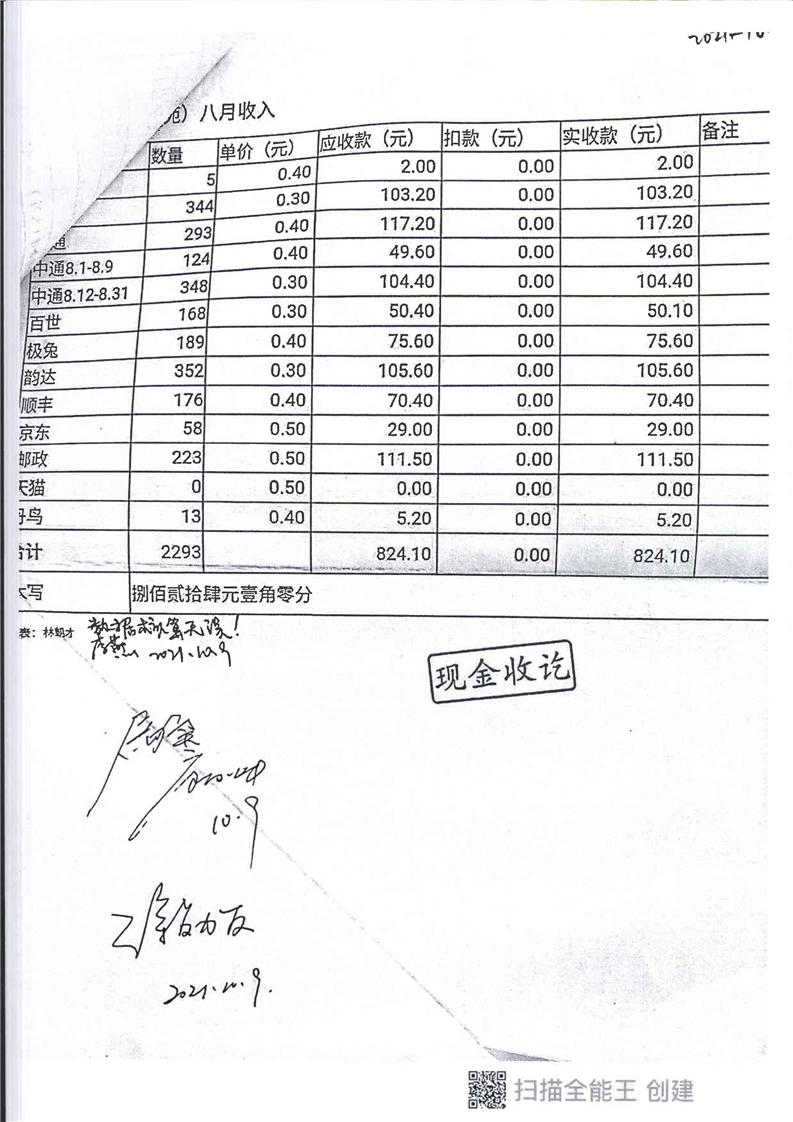 2021.10
苑）八月收入
数量 单价（元） 应收款（元） 扣款（元） 实收款（元） 备注
5 0.40 2.00 0.00 2.00
344 0.30 103.20 0.00 103.20
通 293 0.40 117.20 0.00 117.20
中通8.1-8.9 124 0.40 49.60 0.00 49.60
中通8.12-8.31 348 0.30 104.40 0.00 104.40
百世 168 0.30 50.40 0.00 50.10
极兔 189 0.40 75.60 0.00 75.60
韵达 352 0.30 105.60 0.00 105.60
顺丰 176 0.40 70.40 0.00 70.40
京东 58 0.50 29.00 0.00 29.00
邮政 223 0.50 111.50 0.00 111.50
天猫 0 0.50 0.00 0.00 0.00
丹鸟 13 0.40 5.20 0.00 5.20
合计 2293 824.10 0.00 824.10
大写 捌佰贰拾肆元壹角零分
表：林朝才
2021.10.9
现金收讫
10.9
2021.10.9.
扫描全能王 创建